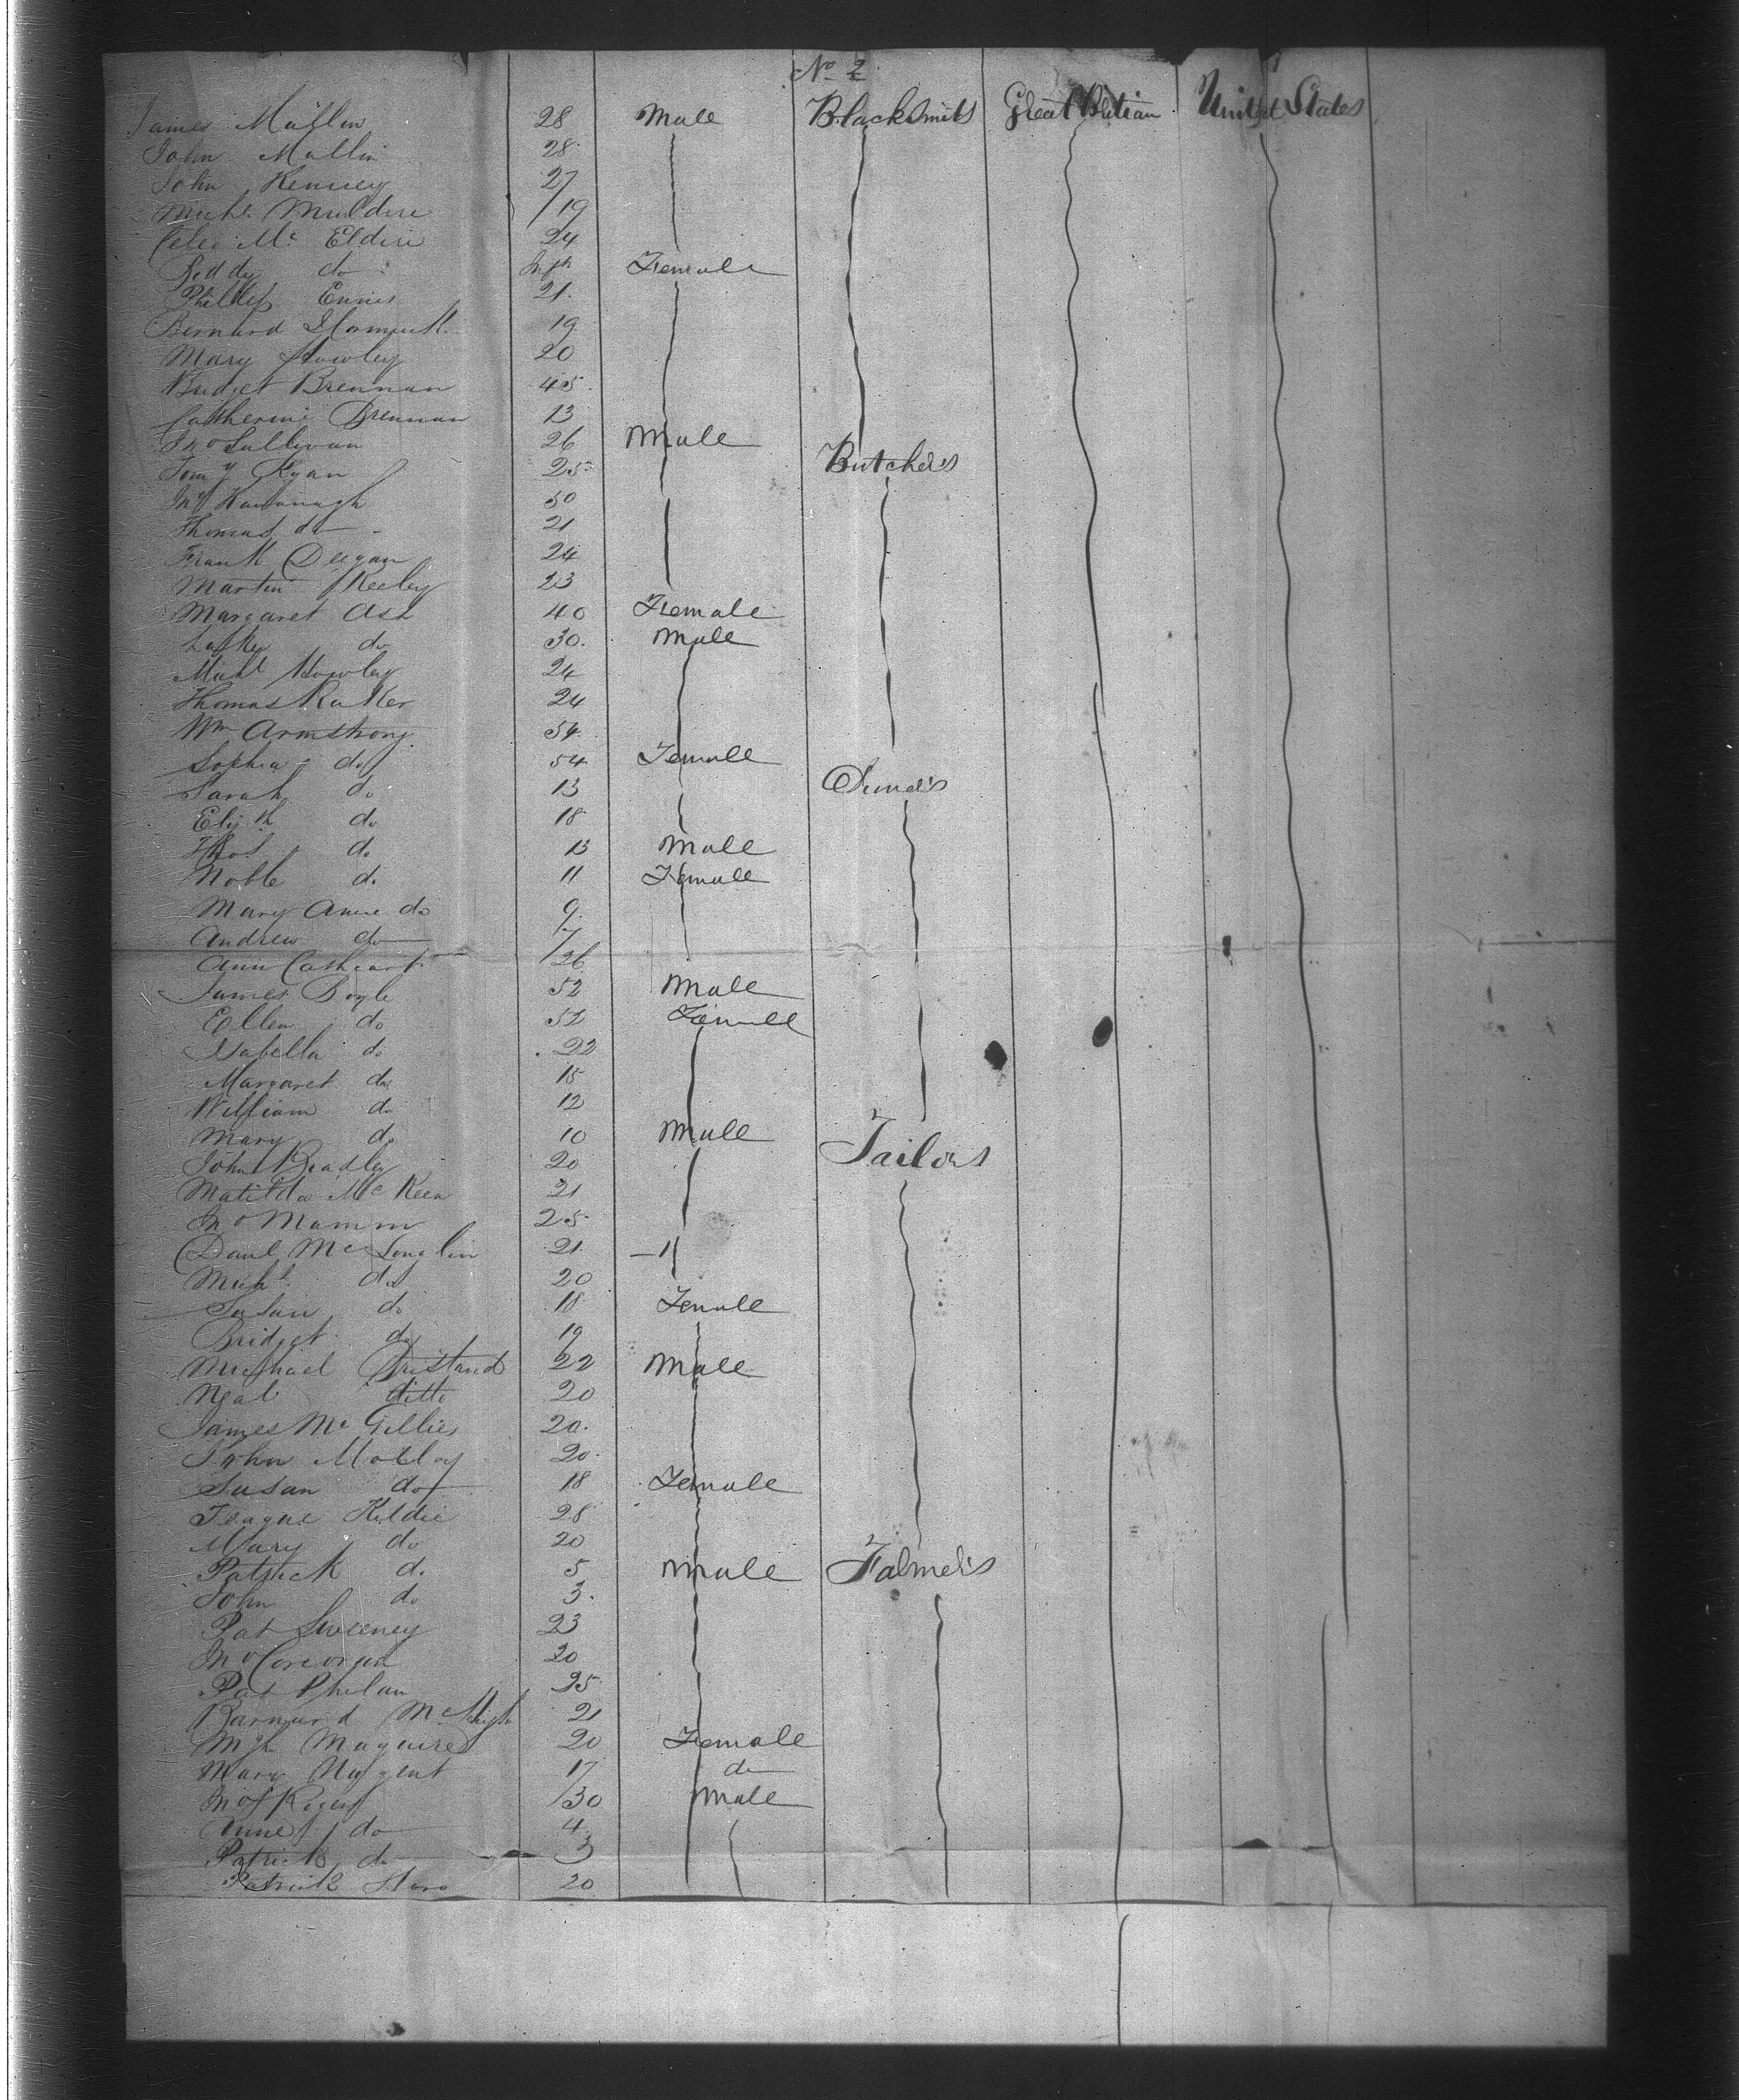 No 2
James Mullin 28 Male Blacksmits Great Britian United States
John Mullin 28
John Kenney 27
Michl. Muldire 19
Mc Eldire 24
do Inft Female
Phillip Ennis 21
Bernard 19
Mary Howley 20
Bridget Brennan 45
Catherine Brennan 13
Jno Sullivan 26 Male
Ryan 25 Butchers
Jno Kavanagh 50
Thomas do 21
Frank Deegan 24
Martin Keeley 23
Margaret Ash 40 Female
do 30 Male
Michl Howley 24
Thomas 24
Wm Armstrong 54
Sophia do 54 Female
Sarah do 13
Elizth do 18
Thos do 13 Male
Noble do 11 Female
Mary Anne do 9
Andrew do 7
Ann Cathcart 26
James Boyle 52 Male
Ellen do 52 Female
Isabella do 22
Margaret do 15
William do 12
Mary do 10 Male
John Bradley 20 Tailors
Matilda Mc Keen 21
Jno 25
Danl Mc Louglin 21
Michl do 20
Susan do 18 Female
Bridget do 19
Michael 22 Male
Neal ditto 20
James Mc Gillies 20
John Molloy 20
Susan do 18 Female
Teague Kildie 28
Mary do 20
Patrick do 5 Male Falmers
John do 3
Pat Sweeney 23
Jno Corcoran 20
Pat Phelan 25
Barnard Mc Hugh 21
Maguire 20 Female
Mary Nugent 17 do
Jno 30 Male
Anne do 4
Patrick do 3
Patrick 20